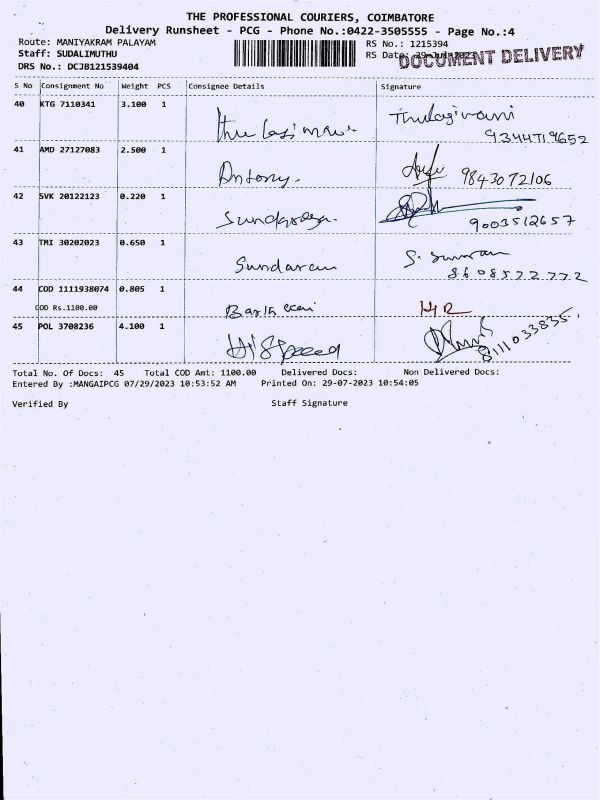 THE PROFESSIONAL COURIERS, COIMBATORE
Delivery Runsheet - PCG - Phone No.:0422-3505555 - Page No.:4
Route: MANIYAKRAM PALAYAM RS No.: 1215394
Staff: SUDALIMUTHU RS Date: 29-Jul-2023
DOCUMENT DELIVERY
DRS No.: DCJB121539404
S No Consignment No Weight PCS Consignee Details Signature
40 KTG 7110341 3.100 1
9344719652
41 AMD 27127083 2.500 1 Antony.
9843072106
42 SVK 20122123 0.220 1
9003512657
43 TMI 30202023 0.650 1 Sundaram
8608572772
44 COD 1111938074 0.805 1
COD Rs.1100.00
45 POL 3708236 4.100 1 Hi Speed 8111033835.
Total No. Of Docs: 45 Total COD Amt: 1100.00 Delivered Docs: Non Delivered Docs:
Entered By :MANGAIPCG 07/29/2023 10:53:52 AM Printed On: 29-07-2023 10:54:05
Verified By Staff Signature